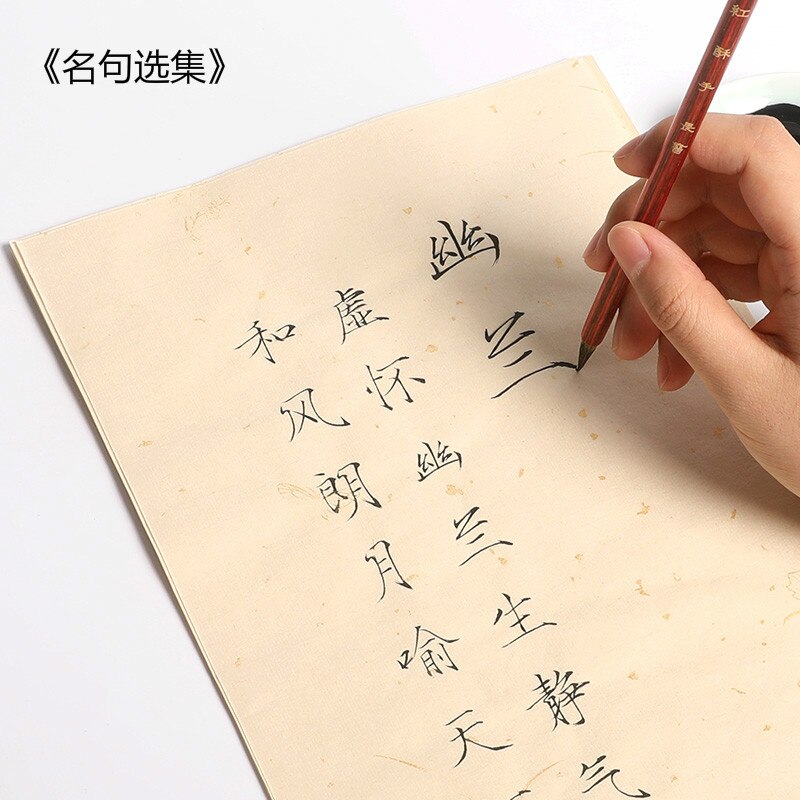 《名句选集》
幽兰
虚怀幽兰生静气
和风朗月喻天
紅酥手